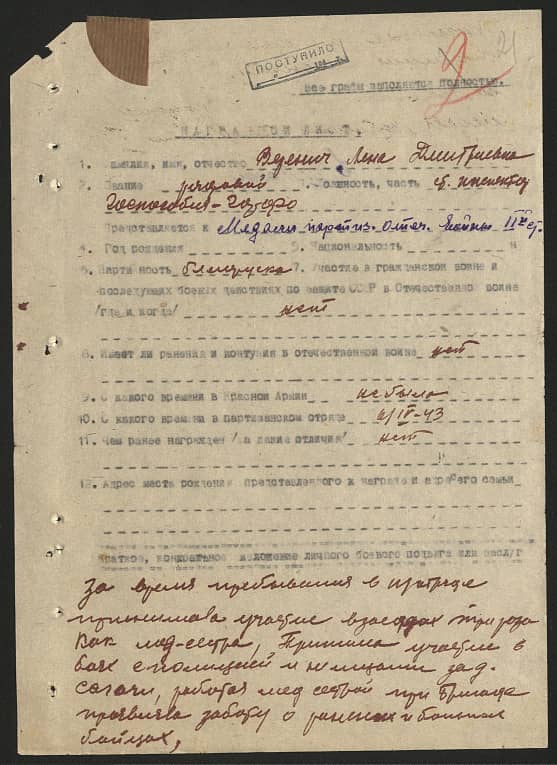 ПОСТУПИЛО
2 21
Все графы заполняются полностью.
НАГРАДНОЙ ЛИСТ.
1. Фамилия, имя, отчество Веренич Лена Дмитриевна
2. Звание рядовой 3. Должность, часть ст. инспектор
Представляется к Медали партиз. отеч. войны II й ст.
4. Год рождения 5. Национальность н
6. Парти ность белоруска 7. Участие в гражданской войне и
последующих боевых действиях по защите СССР в Отечественной войне
/где и когда/ нет
8. Имеет ли ранения и контузии в отечественной войне нет
9. С какого времени в Красной Армии не была
10. С какого времени в партизанском отряде IV-43
11. Чем ранее награжден /за какие отличия/ нет
12. Адрес место рождения представленного к награде и адрес его семьи
Краткое, конкретное изложение личного боевого подвига или заслуг
За время пребывания в отряде
принимала участие в засадах три рода
как мед-сестра, Приняла участие в
боях с полицией и немцами за д.
Сегачи, работая мед сестрой при бригаде
проявляла заботу о раненых и больных
бойцах,